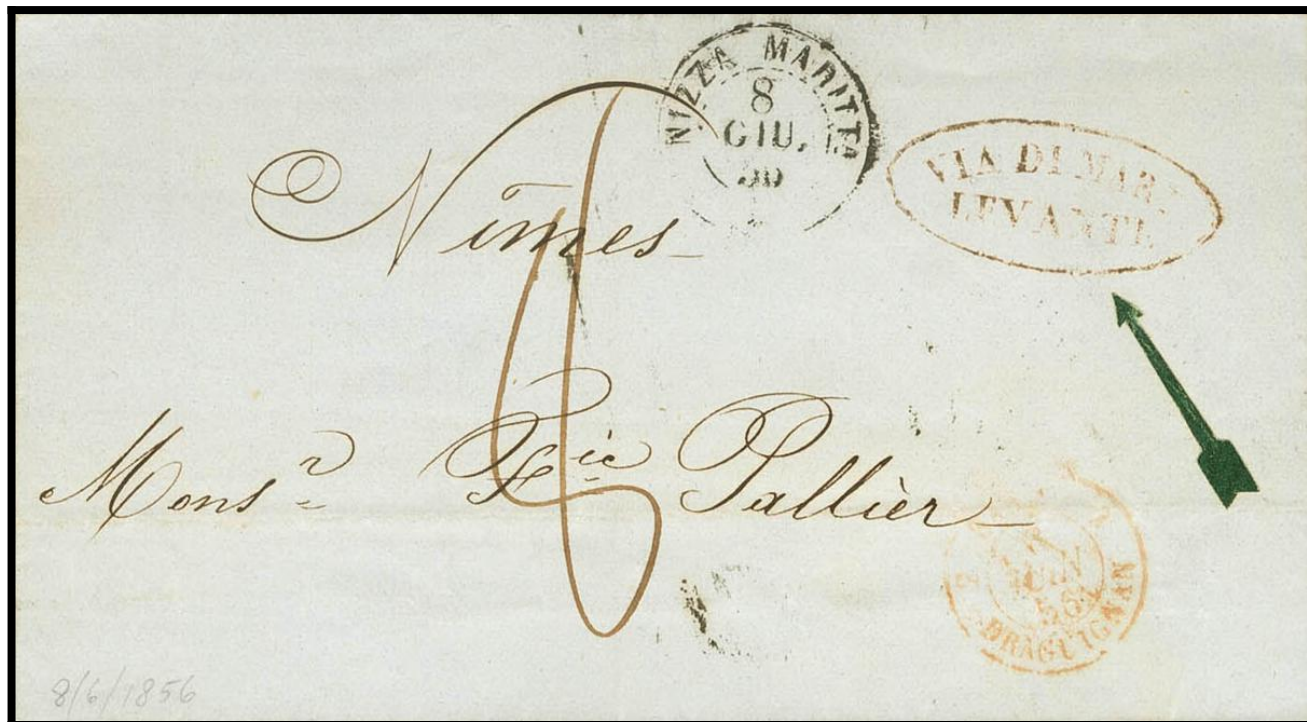 NIZZA MARITTa
8
GIU.
56
VIA DI MARE
LEVANTE
Nîmes
Monsr Fic Pallier
JUIN
56
DRAGUIGNAN
8/6/1856